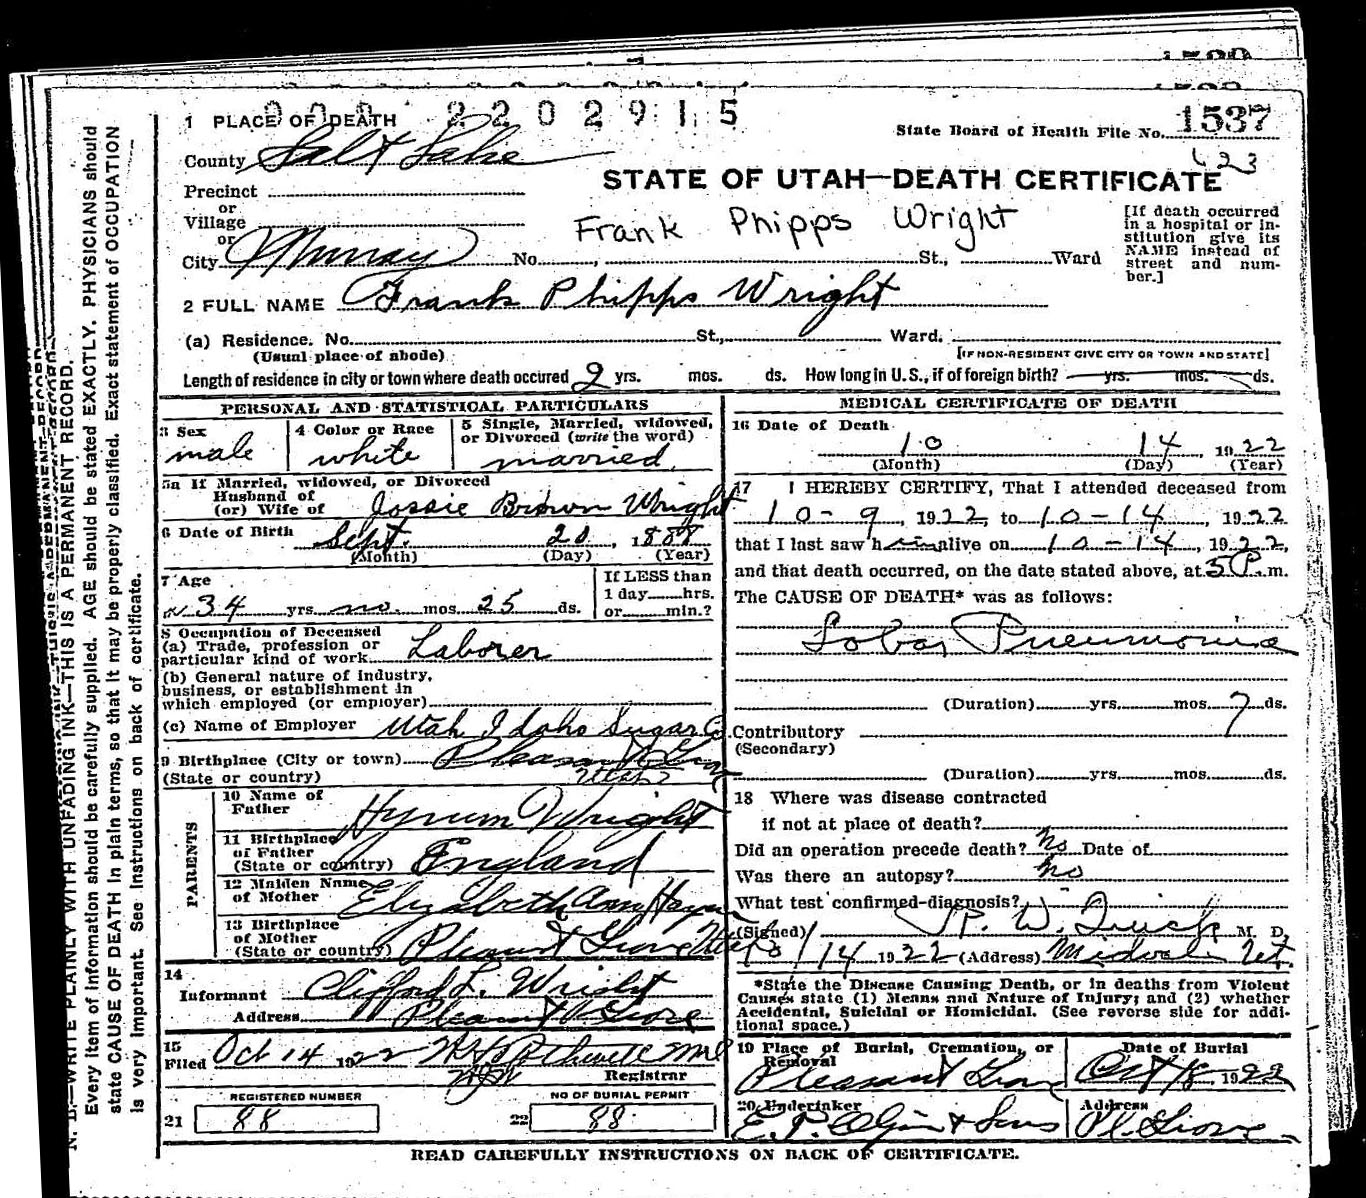 1539
1538
2202915
1 PLACE OF DEATH
State Board of Health File No. 1537
623
County Salt Lake
STATE OF UTAH—DEATH CERTIFICATE
Precinct
or
Village
or
City Murray No. St., Ward
Frank Phipps Wright
[If death occurred in a hospital or institution give its NAME instead of street and number.]
2 FULL NAME Frank Phipps Wright
(a) Residence. No. St., Ward.
(Usual place of abode) [IF NON-RESIDENT GIVE CITY OR TOWN AND STATE]
Length of residence in city or town where death occured 2 yrs. mos. ds. How long in U.S., if of foreign birth? yrs. mos. ds.
PERSONAL AND STATISTICAL PARTICULARS
3 Sex
male
4 Color or Race
white
5 Single, Married, widowed,
or Divorced (write the word)
married
5a If Married, widowed, or Divorced
Husband of
(or) Wife of Jossie Brown Wright
6 Date of Birth Sept. 20, 1888
(Month) (Day) (Year)
7 Age
34 yrs. no. mos. 25 ds.
If LESS than
1 day hrs.
or min.?
8 Occupation of Deceased
(a) Trade, profession or
particular kind of work Laborer
(b) General nature of industry,
business, or establishment in
which employed (or employer)
(c) Name of Employer Utah Idaho Sugar Co.
9 Birthplace (City or town) Pleasant Grove
(State or country) Utah
PARENTS
10 Name of
Father Hyrum Wright
11 Birthplace
of Father
(State or country) England
12 Maiden Name
of Mother Elizabeth Ann
13 Birthplace
of Mother
(State or country) Pleasant Grove Utah
14
Informant Clifford L. Wright
Address Pleasant Grove
15
Filed Oct 14 1922
Registrar
REGISTERED NUMBER
21 88
NO OF BURIAL PERMIT
22 88
MEDICAL CERTIFICATE OF DEATH
16 Date of Death
10 14, 1922
(Month) (Day) (Year)
17 I HEREBY CERTIFY, That I attended deceased from
10-9, 1922, to 10-14, 1922
that I last saw him alive on 10-14, 1922,
and that death occurred, on the date stated above, at 5 P.m.
The CAUSE OF DEATH* was as follows:
Lobar Pneumonia
(Duration) yrs. mos. 7 ds.
Contributory
(Secondary)
(Duration) yrs. mos. ds.
18 Where was disease contracted
if not at place of death?
Did an operation precede death? No Date of
Was there an autopsy? No
What test confirmed diagnosis?
(Signed) R. W. Quick M. D.
10/14 1922 (Address) Midvale Ut.
*State the Disease Causing Death, or in deaths from Violent
Causes state (1) Means and Nature of Injury; and (2) whether
Accidental, Suicidal or Homicidal. (See reverse side for addi-
tional space.)
19 Place of Burial, Cremation, or
Removal
Pleasant Grove
Date of Burial
Oct 18 1922
20 Undertaker
E. P. Olpin & Sons
Address
Pl. Grove
READ CAREFULLY INSTRUCTIONS ON BACK OF CERTIFICATE.
N. B.—WRITE PLAINLY WITH UNFADING INK—THIS IS A PERMANENT RECORD.
Every item of information should be carefully supplied. AGE should be stated EXACTLY. PHYSICIANS should
state CAUSE OF DEATH in plain terms, so that it may be properly classified. Exact statement of OCCUPATION
is very important. See instructions on back of certificate.